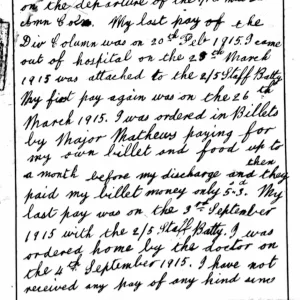 on the departure of the
Amn Coln. My last pay of the
Div Column was on 20th Feb 1915. I came
out of hospital on the 23rd March
1915 was attached to the 2/5 Staff Batty.
My first pay again was on the 26th
March 1915. I was ordered in Billets
by Major Mathews paying for
my own billet and food up to
a month before my discharge and then they
paid my billet money only 5-3d. My
last pay was on the 3rd September
1915 with the 2/5 Staff Batty. I was
ordered home by the doctor on
the 4th September 1915. I have not
received any pay of any kind since